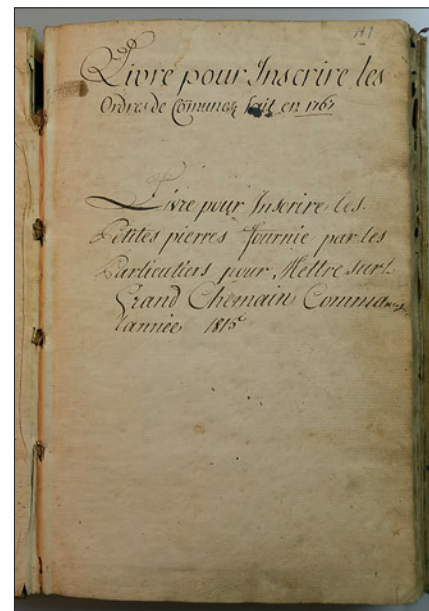 Livre pour Inscrire les
Ordres de Comunes fait en 1767
Livre pour Inscrire les
Petites pierres fournie par les
Particuliers pour Mettre sur l
Grand Chemain Commanc
l'année 1815